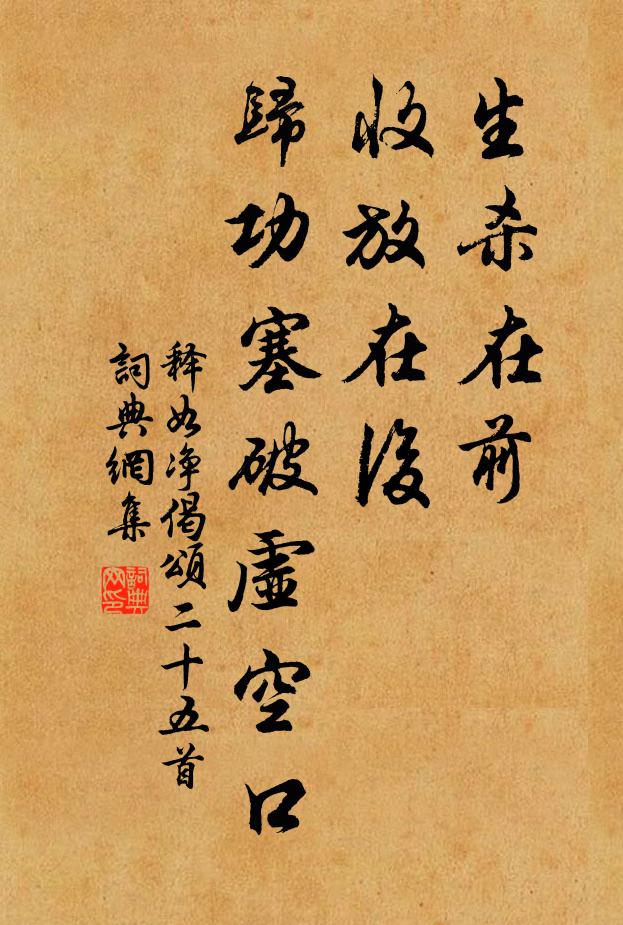 生杀在前
收放在後
歸功塞破虛空口
释如净偈頌二十五首
詞典網集
詞典网印